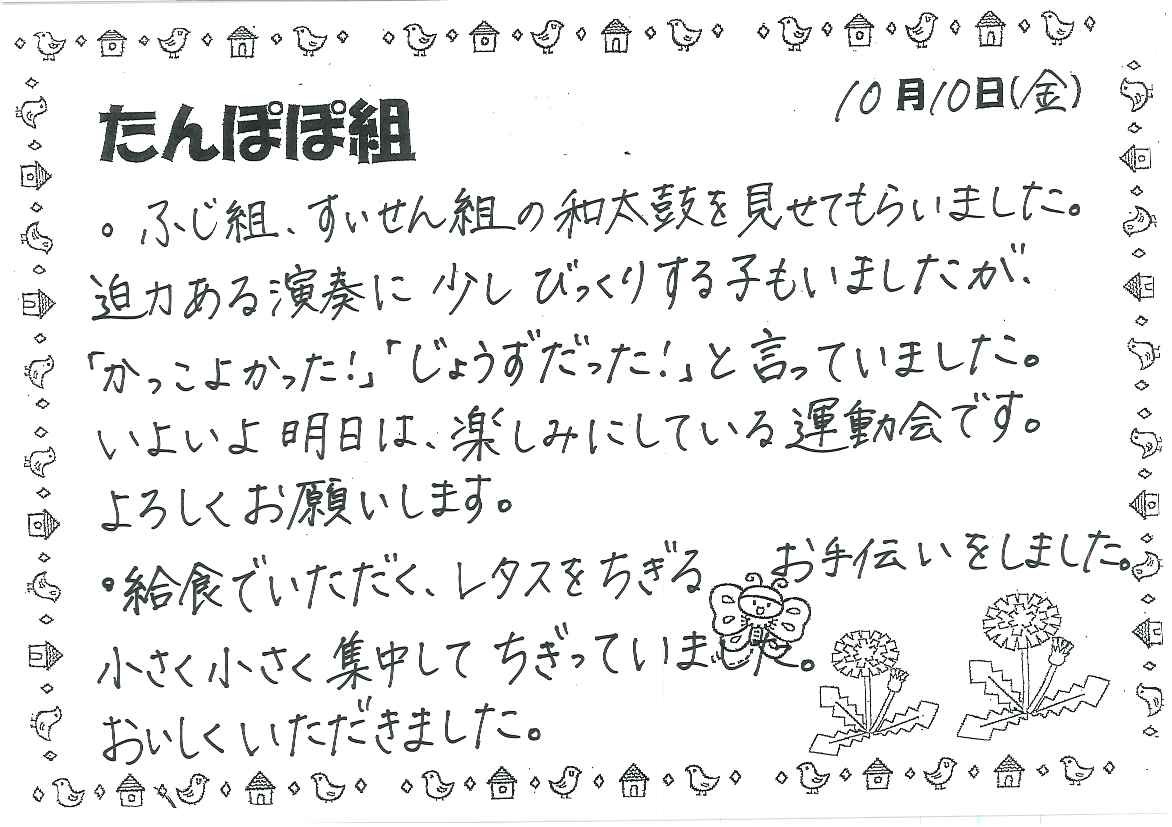 10月10日(金)
たんぽぽ組
。ふじ組、すいせん組の和太鼓を見せてもらいました。
迫力ある演奏に少しびっくりする子もいましたが、
「かっこよかった!」「じょうずだった!」と言っていました。
いよいよ明日は、楽しみにしている運動会です。
よろしくお願いします。
•給食でいただく、レタスをちぎるお手伝いをしました。
小さく小さく集中してちぎっていました。
おいしくいただきました。